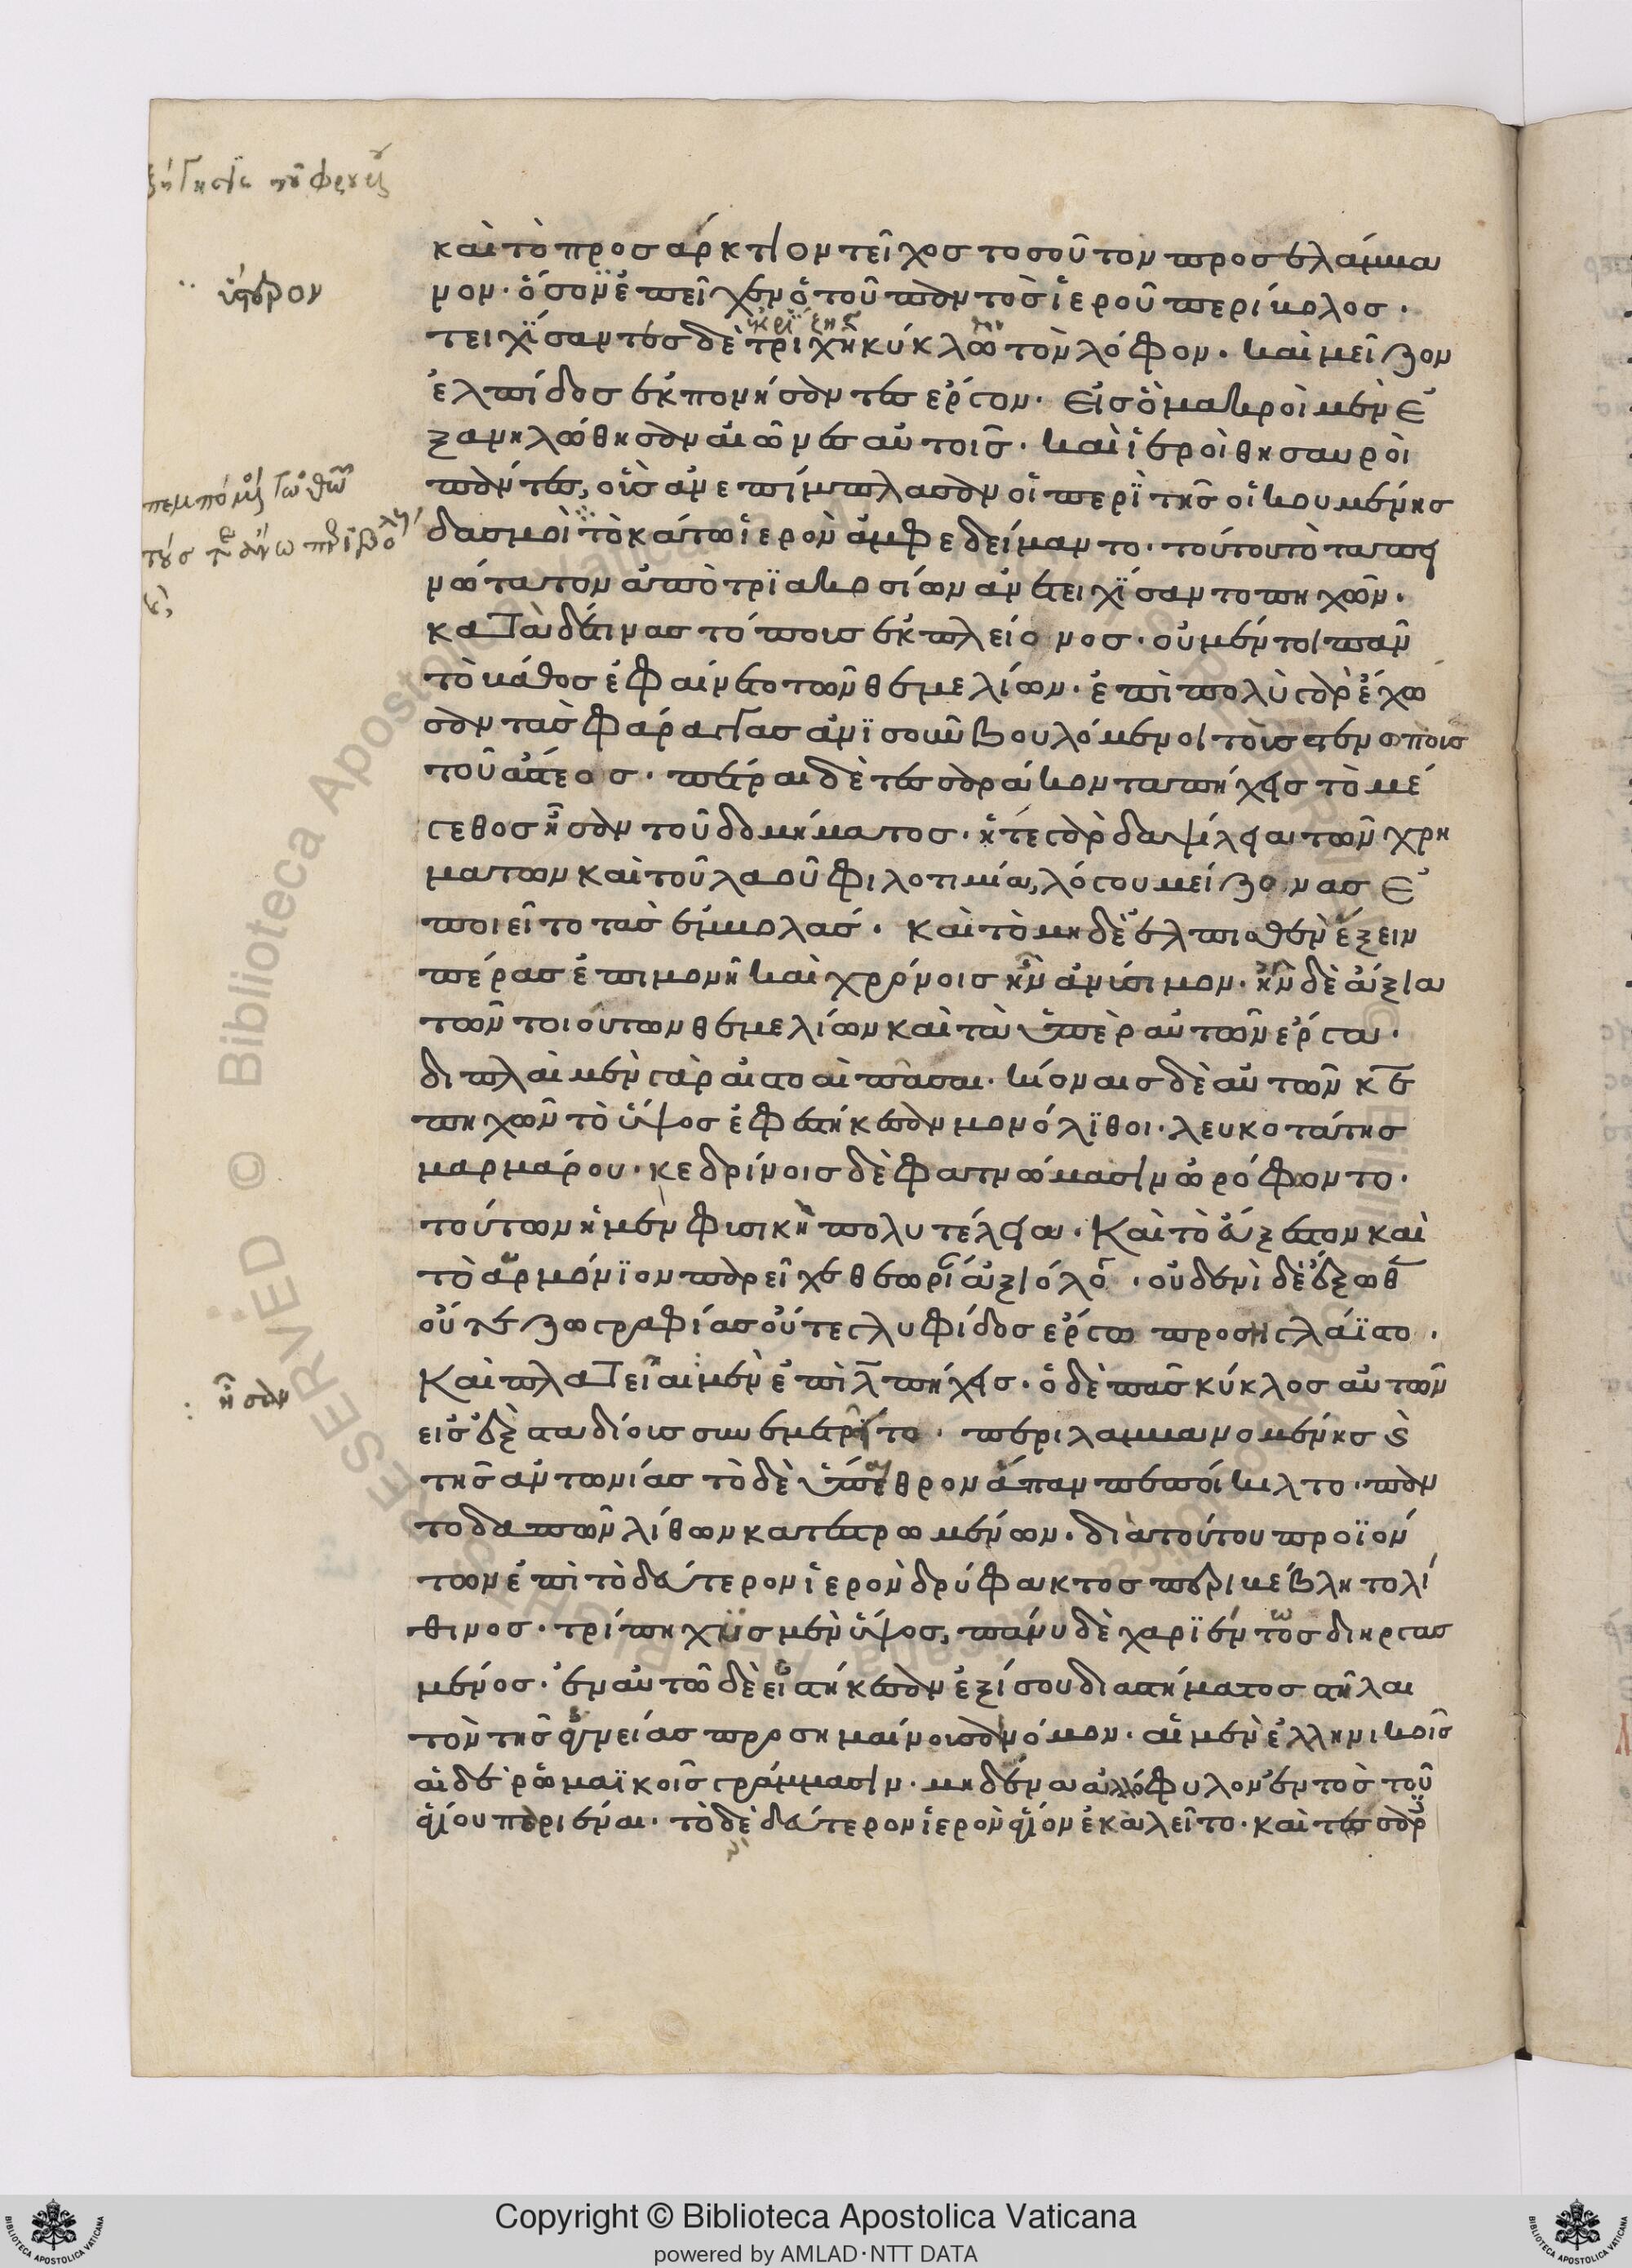 ὕστερον
καὶ τὸ προσάρκτιον τεῖχος τοσοῦτον προσελάμβα
νον· ὅσον ἐπεῖχεν ὁ τοῦ παντὸς ἱεροῦ περίβολος·
τειχίσαντες δὲ τριχῆ κύκλω τὸν λόφον· καὶ μεῖζον
ἐλπίδος ἐκπονήσαντες ἔργον· εἰς ὃ μακροὶ μὲν ἐ
ξανηλώθησαν αἰῶνες αὐτοῖς· καὶ ἱεροὶ θησαυροὶ
πάντες, οἷς ἀνεπίμπλασαν οἱ περὶ τῆς οἰκουμένης
δασμοὶ τὸ κάτω ἱερὸν ἀμφεδείμαντο· τούτου τὸ ταπει
νώτατον ἀπὸ τριακοσίων ἀνετειχίσαντο πηχῶν·
κατὰ δέ τινας τόπους ἐκ πλείονος· οὐ μέντοι πᾶν
τὸ βάθος ἐφαίνετο τῶν θεμελίων· ἐπὶ πολὺ γὰρ ἔχω
σαν τὰς φάραγγας ἀνισοῦν βουλόμενοι τοῖς στενωποῖς
τοῦ ἄστεος· πέτραι δὲ τεσσαράκοντα πήχεις τὸ μέ
γεθος ἦσαν τοῦ δομήματος· ἥ τε γὰρ δαψίλεια τῶν χρη
μάτων καὶ τοῦ λαοῦ φιλοτιμία, λόγου μείζονας ἐ
ποιεῖτο τὰς ἐμβολάς· καὶ τὸ μηδὲ ἐλπισθὲν ἕξειν
πέρας ἐπιμονῆ καὶ χρόνοις ἦν ἀνύσιμον· ἦν δὲ ἄξια
τῶν τοιούτων θεμελίων καὶ τὰ ὑπὲρ αὐτῶν ἔργα·
διπλαῖ μὲν γὰρ αἱ στοαὶ πᾶσαι· κίοναις δὲ αὐτῶν κε
πηχῶν τὸ ὕψος ἐφεστήκεσαν μονόλιθοι· λευκοτάτης
μαρμάρου· κεδρίνοις δὲ φατνώμασιν ὠρόφωντο·
τούτων ἡ μὲν φυσικὴ πολυτέλεια· καὶ τὸ εὔξεστον καὶ
τὸ ἁρμόνιον παρεῖχε θεωρίαν ἀξιόλογον· οὐδενὶ δὲ ἔξωθεν
οὔτε ζωγραφίας οὔτε γλυφίδος ἔργω προσηγλάιστο·
καὶ πλατεῖαι μὲν ἐπὶ λ πήχεις· ὁ δὲ πᾶς κύκλος αὐτῶν
εἰς ἓξ σταδίους συνεμετρεῖτο· περιλαμβανομένης καὶ
τῆς ἀντωνίας τὸ δὲ ὕπαιθρον ἅπαν πεποίκιλτο· παν
τοδαπῶν λίθων κατεστρωμένων· διὰ τούτου προϊόν
των ἐπὶ τὸ δεύτερον ἱερὸν δρύφακτος περιβέβλητο λί
θινος· τρίπηχυς μὲν ὕψος, πάνυ δὲ χαριέντως διηργασ
μένος· ἐν αὐτῶ δὲ εἱστήκεσαν ἐξ ἴσου διαστήματος στῆλαι
τὸν τῆς ἁγνείας προσημαίνουσαν νόμον· αἱ μὲν ἑλληνικοῖς
αἱ δὲ ῥωμαϊκοῖς γράμμασιν· μηδένα ἀλλόφυλον ἐντὸς τοῦ
ἁγίου παριέναι· τὸ δὲ δεύτερον ἱερὸν ἅγιον ἐκαλεῖτο· καὶ τεσσαρ
ἦσαν